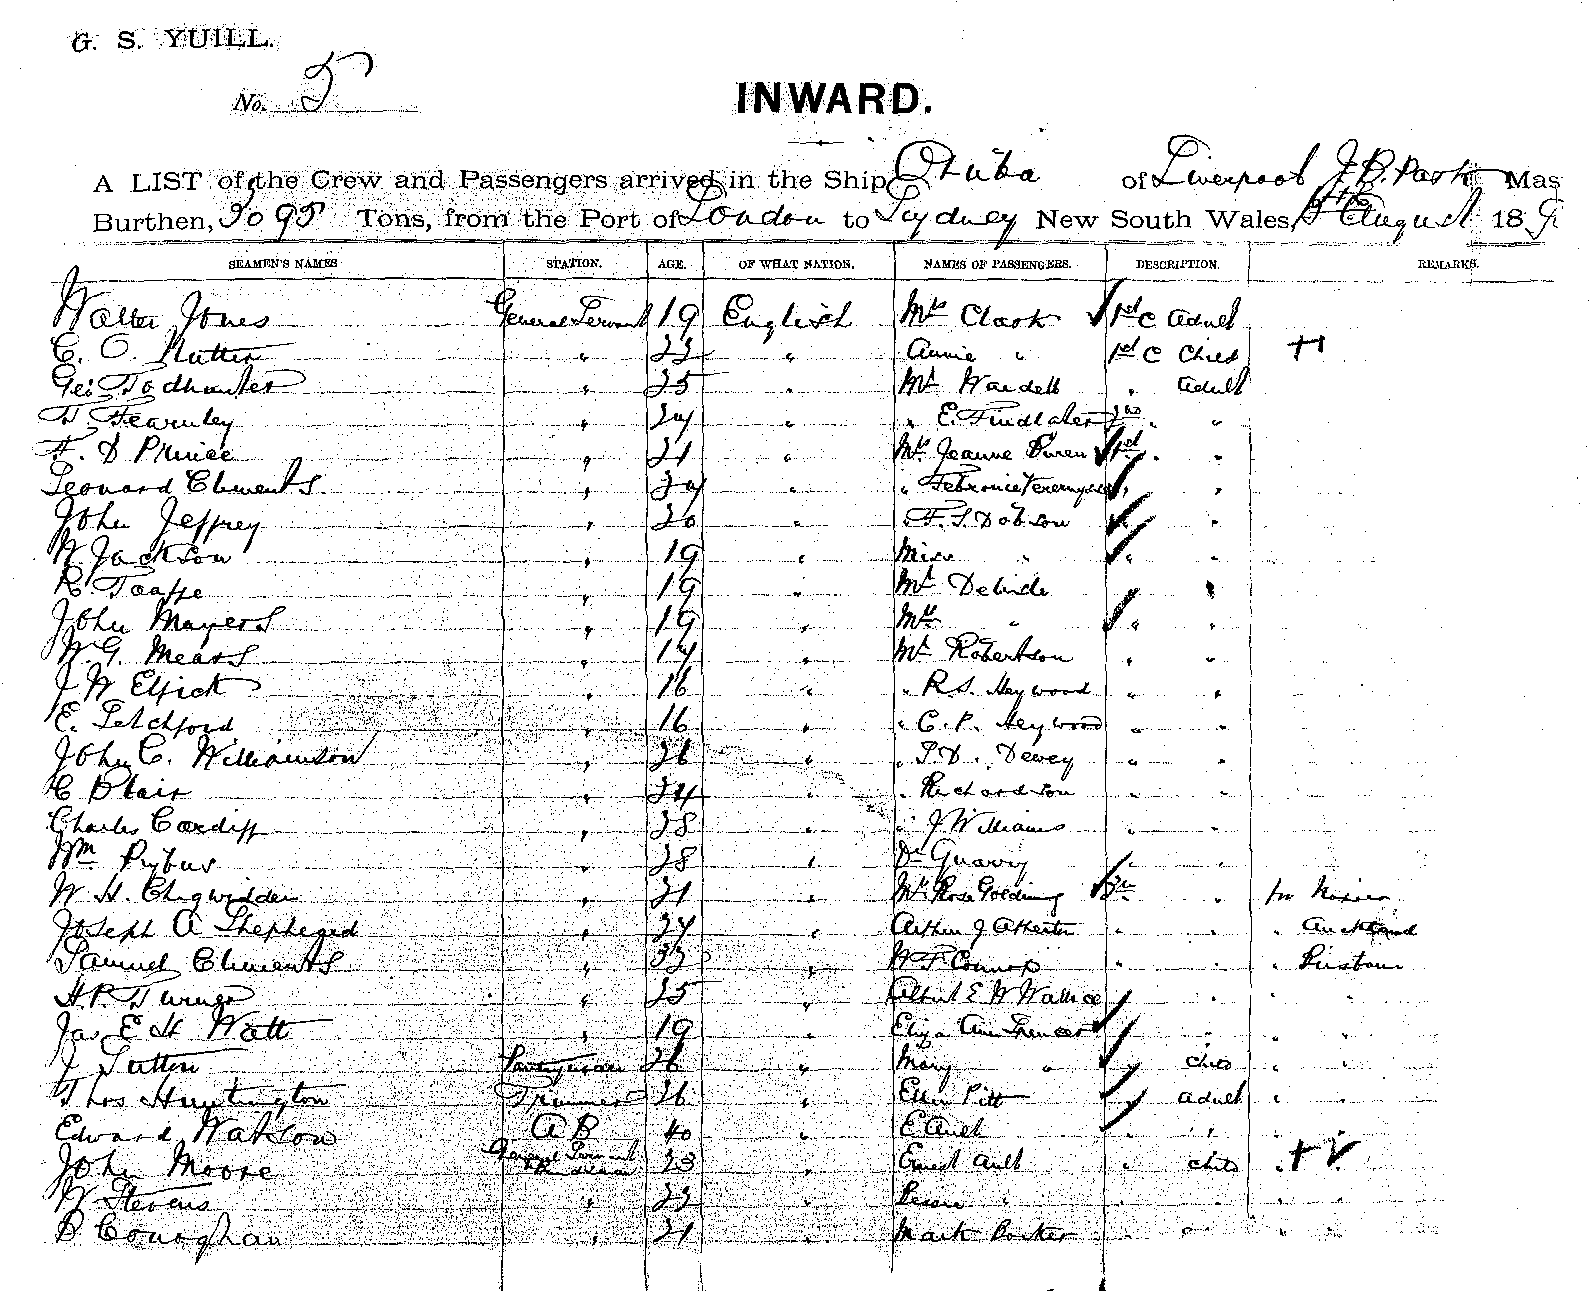 G. S. YUILL.
No. 5
INWARD.
A LIST of the Crew and Passengers arrived in the Ship Oruba of Liverpool J. B. Park Mas
Burthen, 3095 Tons, from the Port of London to Sydney New South Wales, August 189
SEAMEN'S NAMES STATION. AGE. OF WHAT NATION. NAMES OF PASSENGERS. DESCRIPTION. REMARKS.
Walter Jones General Servant 19 English Mrs Clark 1st C Adult
C. O. Nutter " 23 " Annie " 1st C Child
Geo Todhunter " 25 " Mr Wardell " Adult
T Fearnley " 24 " " E. Findlater 2nd " "
F. D Prince " 21 " Mrs Jeanne 1st " "
Leonard Clements " " "
John Jeffrey " 20 " " F. S. Dobson " "
W Jackson " 19 " Miss " " "
R. Taaffe " 19 " Mr "
John Mayers " 19 " Mrs " " "
W. G. Mears " " Mr Robertson " "
J W Elfick " 16 " " R S. Heywood " "
E. Letchford " 16 " " C. P. Heywood " "
John C. Williamson " 26 " " Dewey " "
C Blair " 24 " " Richardson " "
Charles Cardiff " 28 " " J Williams " "
Wm Pybus " 28 " Dr " "
W H. Chegwidden " 21 " Rose Golding "
Joseph A Shepherd " " Arthur J Atherton " " " Auckland
Samuel Clements " 33 " W F Connop " " "
H. P. Turner " 25 " Albert E W Wallice " "
Jas E H Watt " 19 " Eliza Ann Spencer " "
J Sutton 26 " Mary " " Child " "
Thos Huntington Trimmer 26 " Ellen Pitt " Adult " "
Edward Watson A B 40 " E Ault " "
John Moore General Servant 23 " Ernest Ault " Child "
W Stevens " 22 " " " " " "
P Conaghan " 21 " Mark Porter " " " "